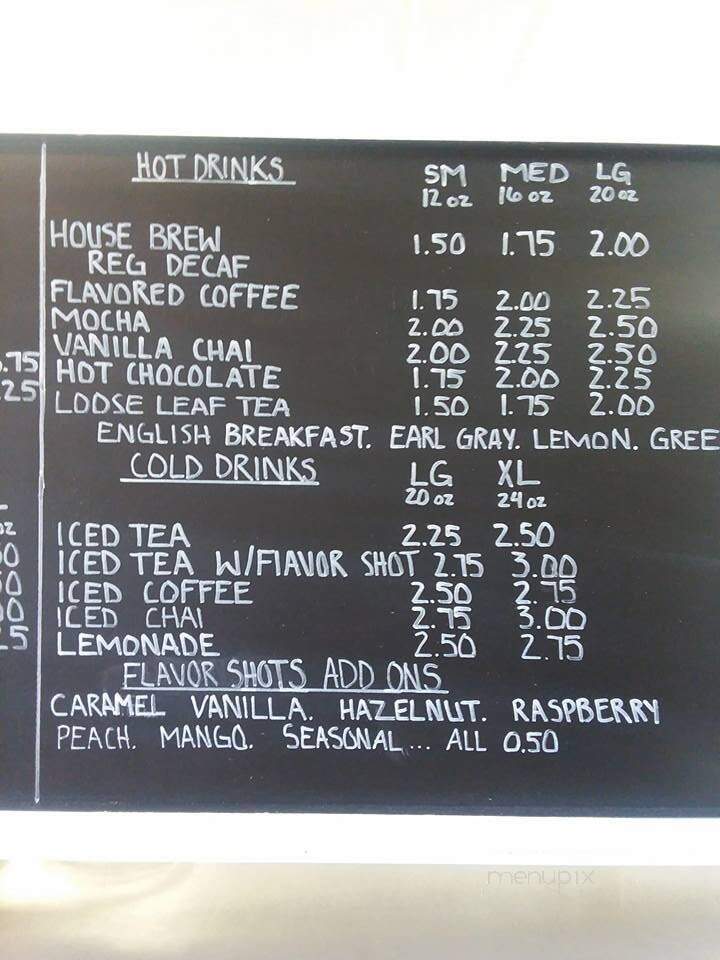 HOT DRINKS SM MED LG
12 oz 16 oz 20 oz
HOUSE BREW 1.50 1.75 2.00
REG DECAF
FLAVORED COFFEE 1.75 2.00 2.25
MOCHA 2.00 2.25 2.50
VANILLA CHAI 2.00 2.25 2.50
HOT CHOCOLATE 1.75 2.00 2.25
LOOSE LEAF TEA 1.50 1.75 2.00
ENGLISH BREAKFAST. EARL GRAY. LEMON. GREE
COLD DRINKS LG XL
20 oz 24 oz
ICED TEA 2.25 2.50
ICED TEA W/FLAVOR SHOT 2.75 3.00
ICED COFFEE 2.50 2.75
ICED CHAI 2.75 3.00
LEMONADE 2.50 2.75
FLAVOR SHOTS ADD ONS
CARAMEL VANILLA. HAZELNUT. RASPBERRY
PEACH. MANGO. SEASONAL... ALL 0.50
menupix